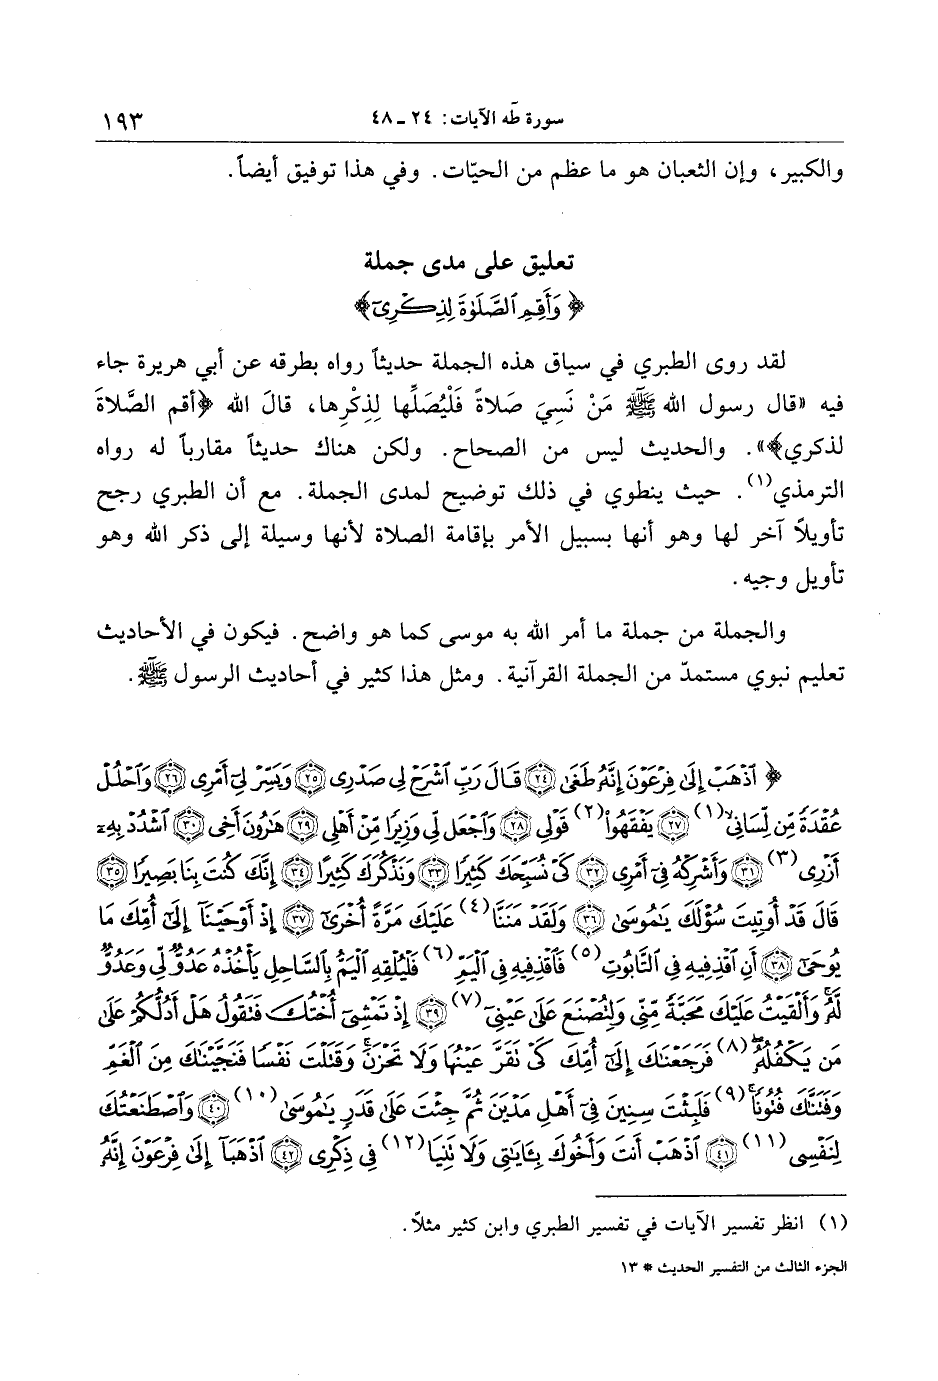 سورة طه الآيات: ٢٤ ـ ٤٨
١٩٣
والكبير، وإن الثعبان هو ما عظم من الحيّات. وفي هذا توفيق أيضاً.
تعليق على مدى جملة
﴿وَأَقِمِ الصَّلَوٰةَ لِذِكْرِيٓ﴾
لقد روى الطبري في سياق هذه الجملة حديثاً رواه بطرقه عن أبي هريرة جاء
فيه «قال رسول الله ﷺ مَنْ نَسِيَ صَلاةً فَلْيُصَلِّها لِذِكْرِها، قالَ الله ﴿أقم الصَّلاةَ
لذكري﴾». والحديث ليس من الصحاح. ولكن هناك حديثاً مقارباً له رواه
الترمذي(١). حيث ينطوي في ذلك توضيح لمدى الجملة. مع أن الطبري رجح
تأويلاً آخر لها وهو أنها بسبيل الأمر بإقامة الصلاة لأنها وسيلة إلى ذكر الله وهو
تأويل وجيه.
والجملة من جملة ما أمر الله به موسى كما هو واضح. فيكون في الأحاديث
تعليم نبوي مستمدّ من الجملة القرآنية. ومثل هذا كثير في أحاديث الرسول ﷺ.
﴿ٱذْهَبْ إِلَىٰ فِرْعَوْنَ إِنَّهُۥ طَغَىٰ ٢٤ قَالَ رَبِّ ٱشْرَحْ لِي صَدْرِي ٢٥ وَيَسِّرْ لِيٓ أَمْرِي ٢٦ وَٱحْلُلْ
عُقْدَةً مِّن لِّسَانِي(١) ٢٧ يَفْقَهُوا۟(٢) قَوْلِي ٢٨ وَٱجْعَل لِّي وَزِيرًا مِّنْ أَهْلِي ٢٩ هَٰرُونَ أَخِي ٣٠ ٱشْدُدْ بِهِۦٓ
أَزْرِي(٣) ٣١ وَأَشْرِكْهُ فِيٓ أَمْرِي ٣٢ كَيْ نُسَبِّحَكَ كَثِيرًا ٣٣ وَنَذْكُرَكَ كَثِيرًا ٣٤ إِنَّكَ كُنتَ بِنَا بَصِيرًا ٣٥
قَالَ قَدْ أُوتِيتَ سُؤْلَكَ يَٰمُوسَىٰ ٣٦ وَلَقَدْ مَنَنَّا(٤) عَلَيْكَ مَرَّةً أُخْرَىٰٓ ٣٧ إِذْ أَوْحَيْنَآ إِلَىٰٓ أُمِّكَ مَا
يُوحَىٰٓ ٣٨ أَنِ ٱقْذِفِيهِ فِي ٱلتَّابُوتِ(٥) فَٱقْذِفِيهِ فِي ٱلْيَمِّ(٦) فَلْيُلْقِهِ ٱلْيَمُّ بِٱلسَّاحِلِ يَأْخُذْهُ عَدُوٌّ لِّي وَعَدُوٌّ
لَّهُۥ وَأَلْقَيْتُ عَلَيْكَ مَحَبَّةً مِّنِّي وَلِتُصْنَعَ عَلَىٰ عَيْنِيٓ(٧) ٣٩ إِذْ تَمْشِيٓ أُخْتُكَ فَتَقُولُ هَلْ أَدُلُّكُمْ عَلَىٰ
مَن يَكْفُلُهُۥ(٨) فَرَجَعْنَٰكَ إِلَىٰٓ أُمِّكَ كَيْ تَقَرَّ عَيْنُهَا وَلَا تَحْزَنَ وَقَتَلْتَ نَفْسًا فَنَجَّيْنَٰكَ مِنَ ٱلْغَمِّ
وَفَتَنَّٰكَ فُتُونًا(٩) فَلَبِثْتَ سِنِينَ فِيٓ أَهْلِ مَدْيَنَ ثُمَّ جِئْتَ عَلَىٰ قَدَرٍ يَٰمُوسَىٰ(١٠) ٤٠ وَٱصْطَنَعْتُكَ
لِنَفْسِي(١١) ٤١ ٱذْهَبْ أَنتَ وَأَخُوكَ بِـَٔايَٰتِي وَلَا تَنِيَا(١٢) فِي ذِكْرِي ٤٢ ٱذْهَبَآ إِلَىٰ فِرْعَوْنَ إِنَّهُۥ
(١) انظر تفسير الآيات في تفسير الطبري وابن كثير مثلاً.
الجزء الثالث من التفسير الحديث * ١٣